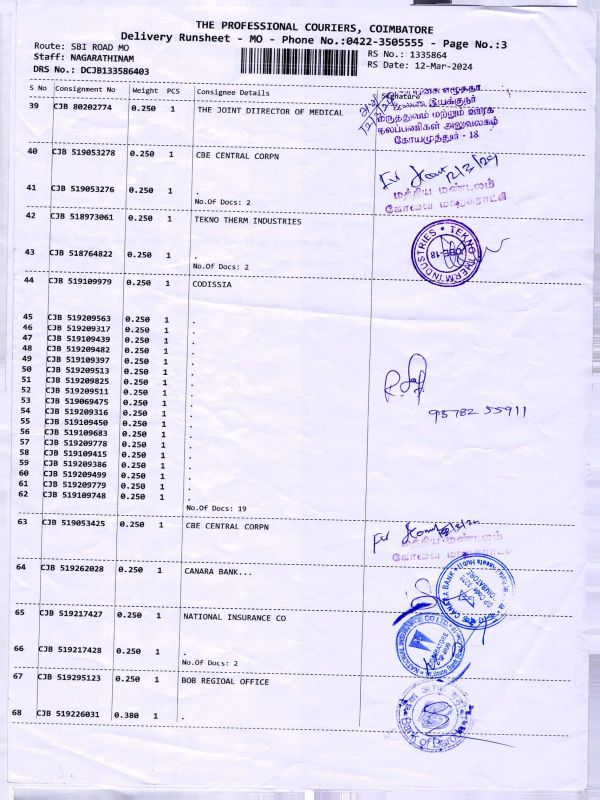 THE PROFESSIONAL COURIERS, COIMBATORE
Delivery Runsheet - MO - Phone No.:0422-3505555 - Page No.:3
Route: SBI ROAD MO
RS No.: 1335864
Staff: NAGARATHINAM
RS Date: 12-Mar-2024
DRS No.: DCJB133586403
S No Consignment No Weight PCS Consignee Details Signature
39 CJB 80202774 0.250 1 THE JOINT DIIRECTOR OF MEDICAL
இணை இயக்குநர்
மருத்துவம் மற்றும் ஊரக
நலப்பணிகள் அலுவலகம்
கோயமுத்தூர் - 18
40 CJB 519053278 0.250 1 CBE CENTRAL CORPN
41 CJB 519053276 0.250 1 .
மத்திய மண்டலம்
கோவை மாநகராட்சி
No.Of Docs: 2
42 CJB 518973061 0.250 1 TEKNO THERM INDUSTRIES
TEKNO THERM INDUSTRIES
CBE-18
43 CJB 518764822 0.250 1 .
No.Of Docs: 2
44 CJB 519109979 0.250 1 CODISSIA
45 CJB 519209563 0.250 1 .
46 CJB 519209317 0.250 1 .
47 CJB 519109439 0.250 1 .
48 CJB 519209482 0.250 1 .
49 CJB 519109397 0.250 1 .
50 CJB 519209513 0.250 1 .
51 CJB 519209825 0.250 1 .
52 CJB 519209511 0.250 1 .
53 CJB 519069475 0.250 1 .
54 CJB 519209316 0.250 1 .
55 CJB 519109450 0.250 1 .
56 CJB 519109683 0.250 1 .
57 CJB 519209778 0.250 1 .
58 CJB 519109415 0.250 1 .
59 CJB 519209386 0.250 1 .
60 CJB 519209499 0.250 1 .
61 CJB 519209779 0.250 1 .
62 CJB 519109748 0.250 1 .
95782 55911
No.Of Docs: 19
63 CJB 519053425 0.250 1 CBE CENTRAL CORPN
மத்திய மண்டலம்
கோவை மாநகராட்சி
64 CJB 519262028 0.250 1 CANARA BANK...
CANARA BANK
COIMBATORE
65 CJB 519217427 0.250 1 NATIONAL INSURANCE CO
NATIONAL INSURANCE CO LTD
66 CJB 519217428 0.250 1 .
No.Of Docs: 2
67 CJB 519295123 0.250 1 BOB REGIOAL OFFICE
68 CJB 519226031 0.380 1 .
Bank of Baroda